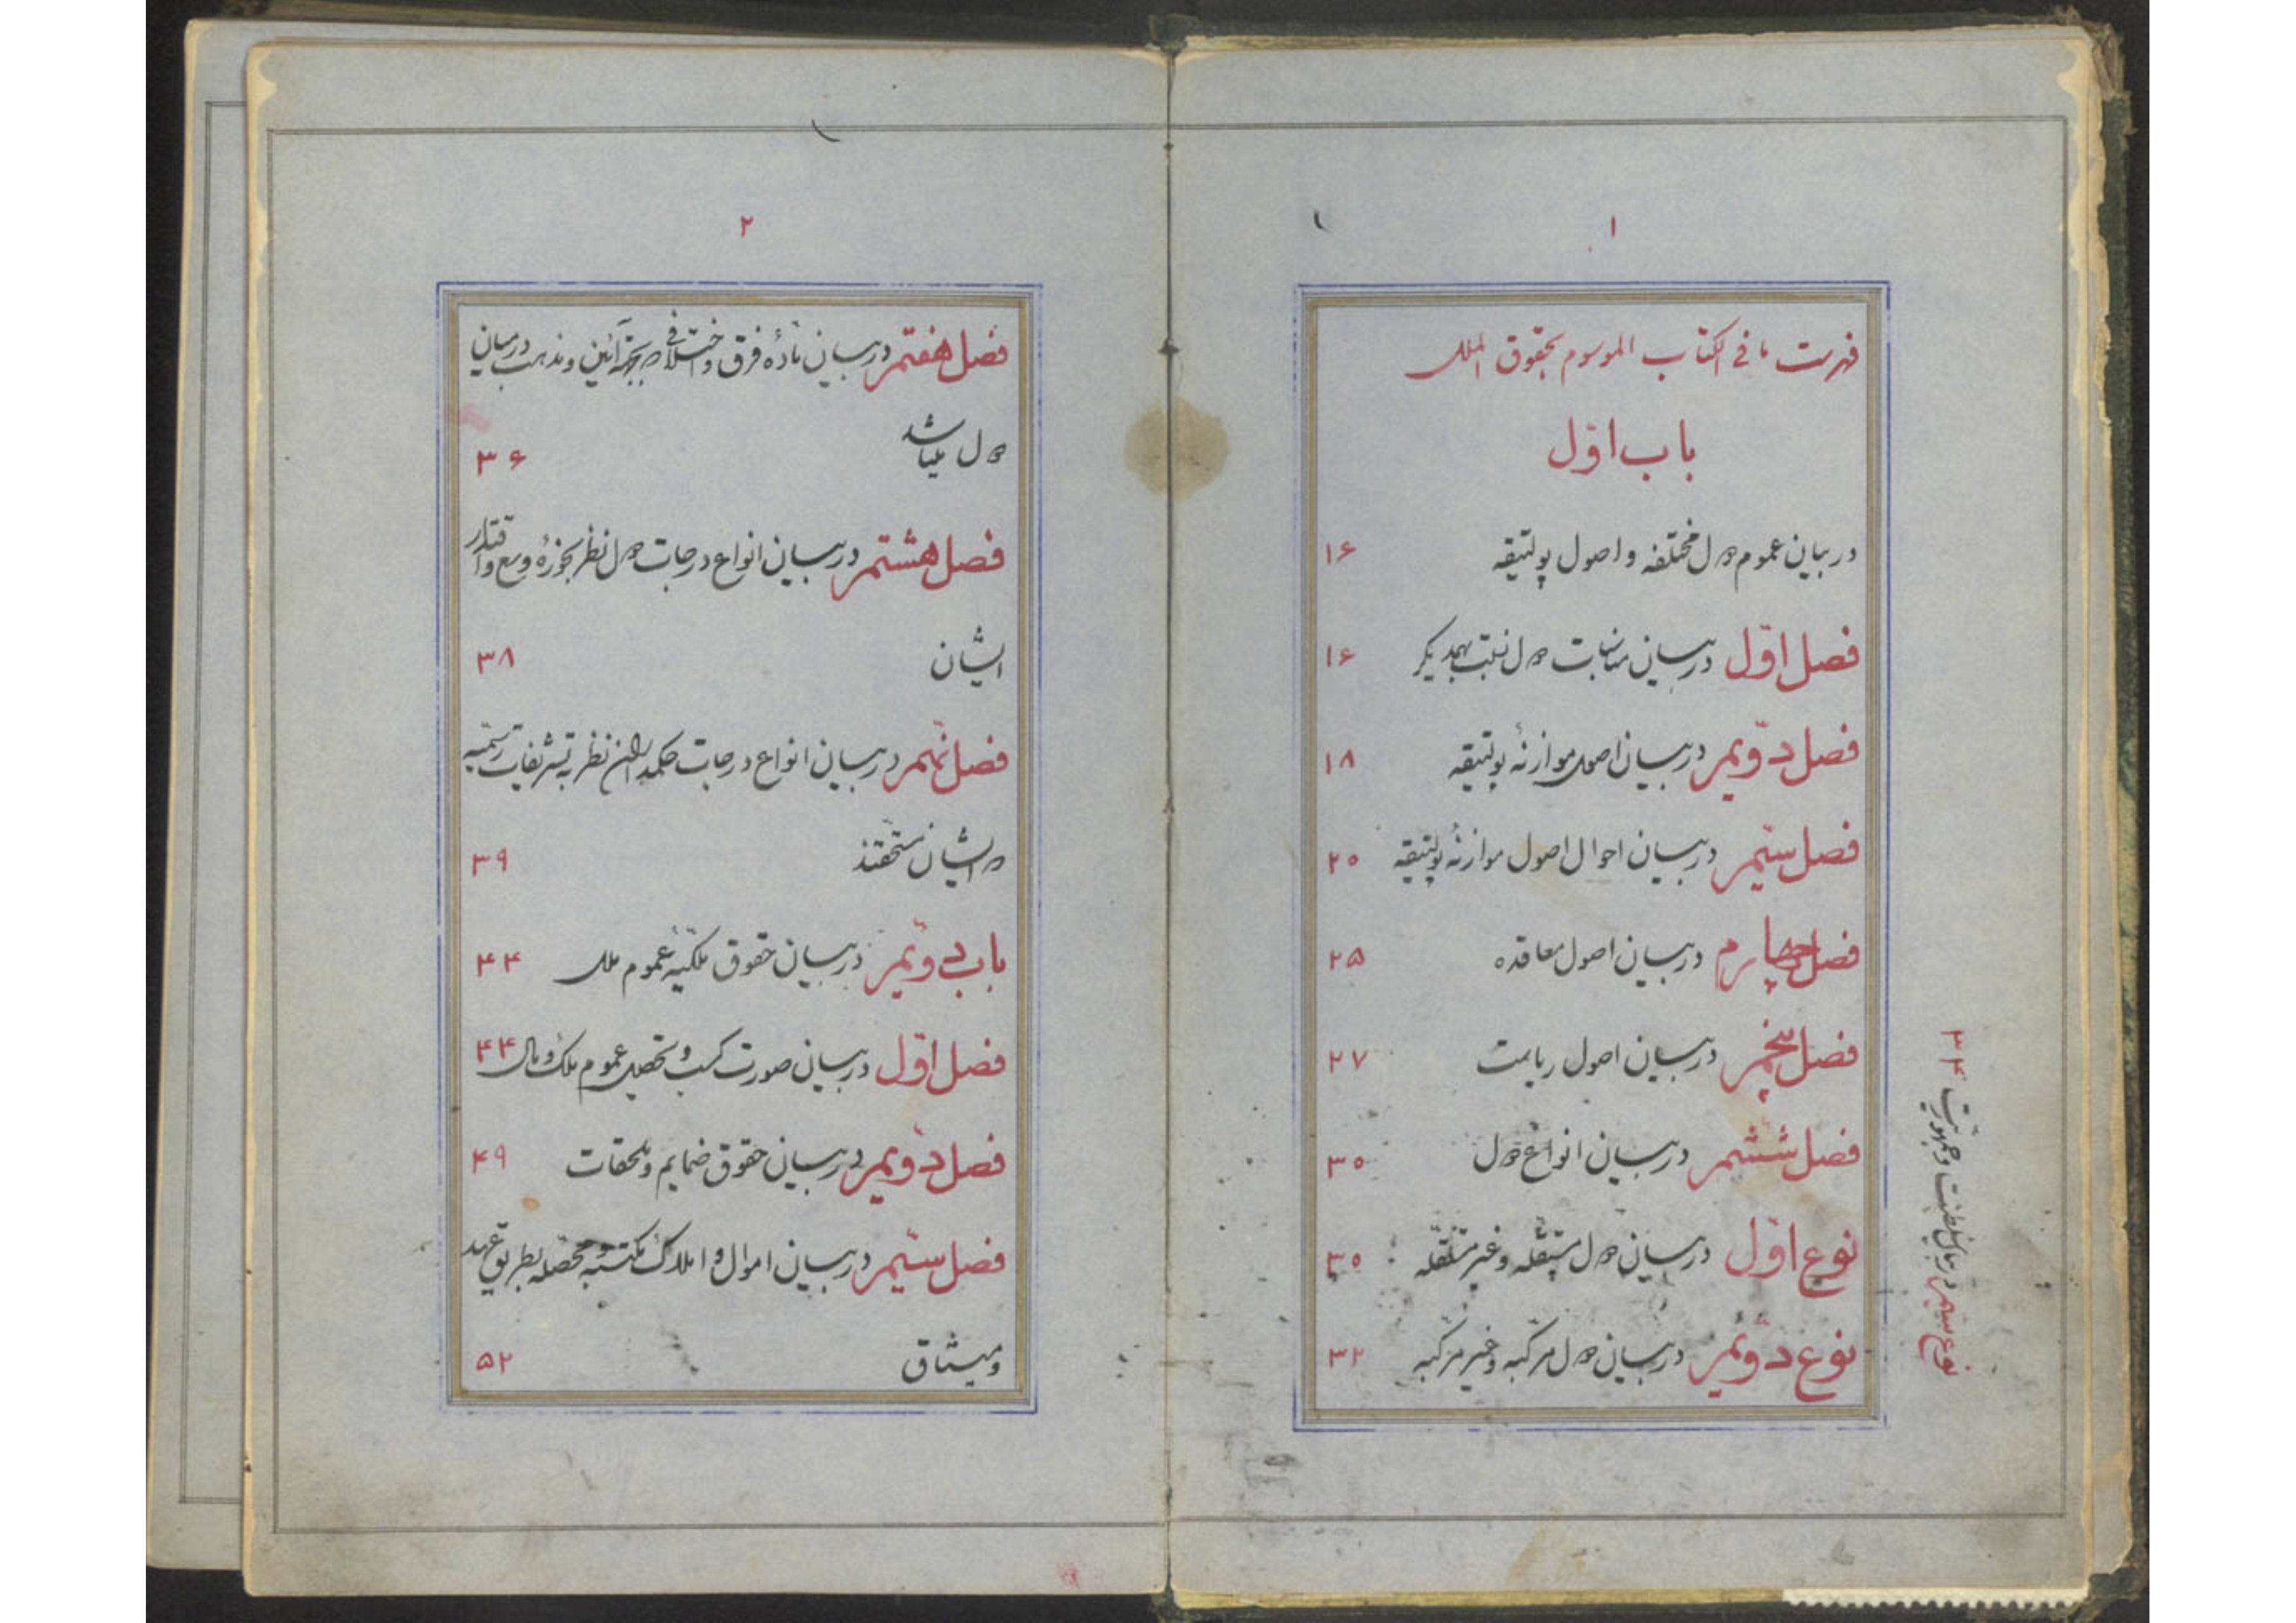 ۱
فهرست ما فی الکتاب الموسوم بحقوق الملل
باب اوّل
در بیان عموم دول مختلفه و اصول پولتیقه ۱۶
فصل اوّل در بیان مناسبات دول نسبت بهمدیگر ۱۶
فصل دوّیم در بیان اصول موازنهٔ پولتیقه ۱۸
فصل سیّم در بیان احوال اصول موازنهٔ پولتیقه ۲۰
فصل چهارم در بیان اصول معاقده ۲۵
فصل پنجم در بیان اصول ریاست ۲۷
فصل ششم در بیان انواع دول ۳۰
نوع اوّل در بیان دول مستقلّه و غیر مستقلّه ۳۰
نوع دوّیم در بیان دول مرکّبه و غیر مرکّبه ۳۲
نوع سیّم در بیان سلطنت و جمهوریّت ۳۴
۲
فصل هفتم در بیان مادهٔ فرق و اختلافی که بجهة آئین و مذهب در میان
دول میباشد ۳۶
فصل هشتم در بیان انواع درجات دول نظر بحوزهٔ وسع و اقتدار
ایشان ۳۸
فصل نهم در بیان انواع درجات حکمداران نظر به تشریفات رسمیّه
که ایشان مستحقّند ۳۹
باب دوّیم در بیان حقوق ملکیّهٔ عموم ملل ۴۴
فصل اوّل در بیان صورت کسب و تحصیل عموم ملک و مال ۴۴
فصل دویم در بیان حقوق ضمایم و ملحقات ۴۹
فصل سیّم در بیان اموال و املاک مکتسبه و محصّله بطریق عهد
و میثاق ۵۲